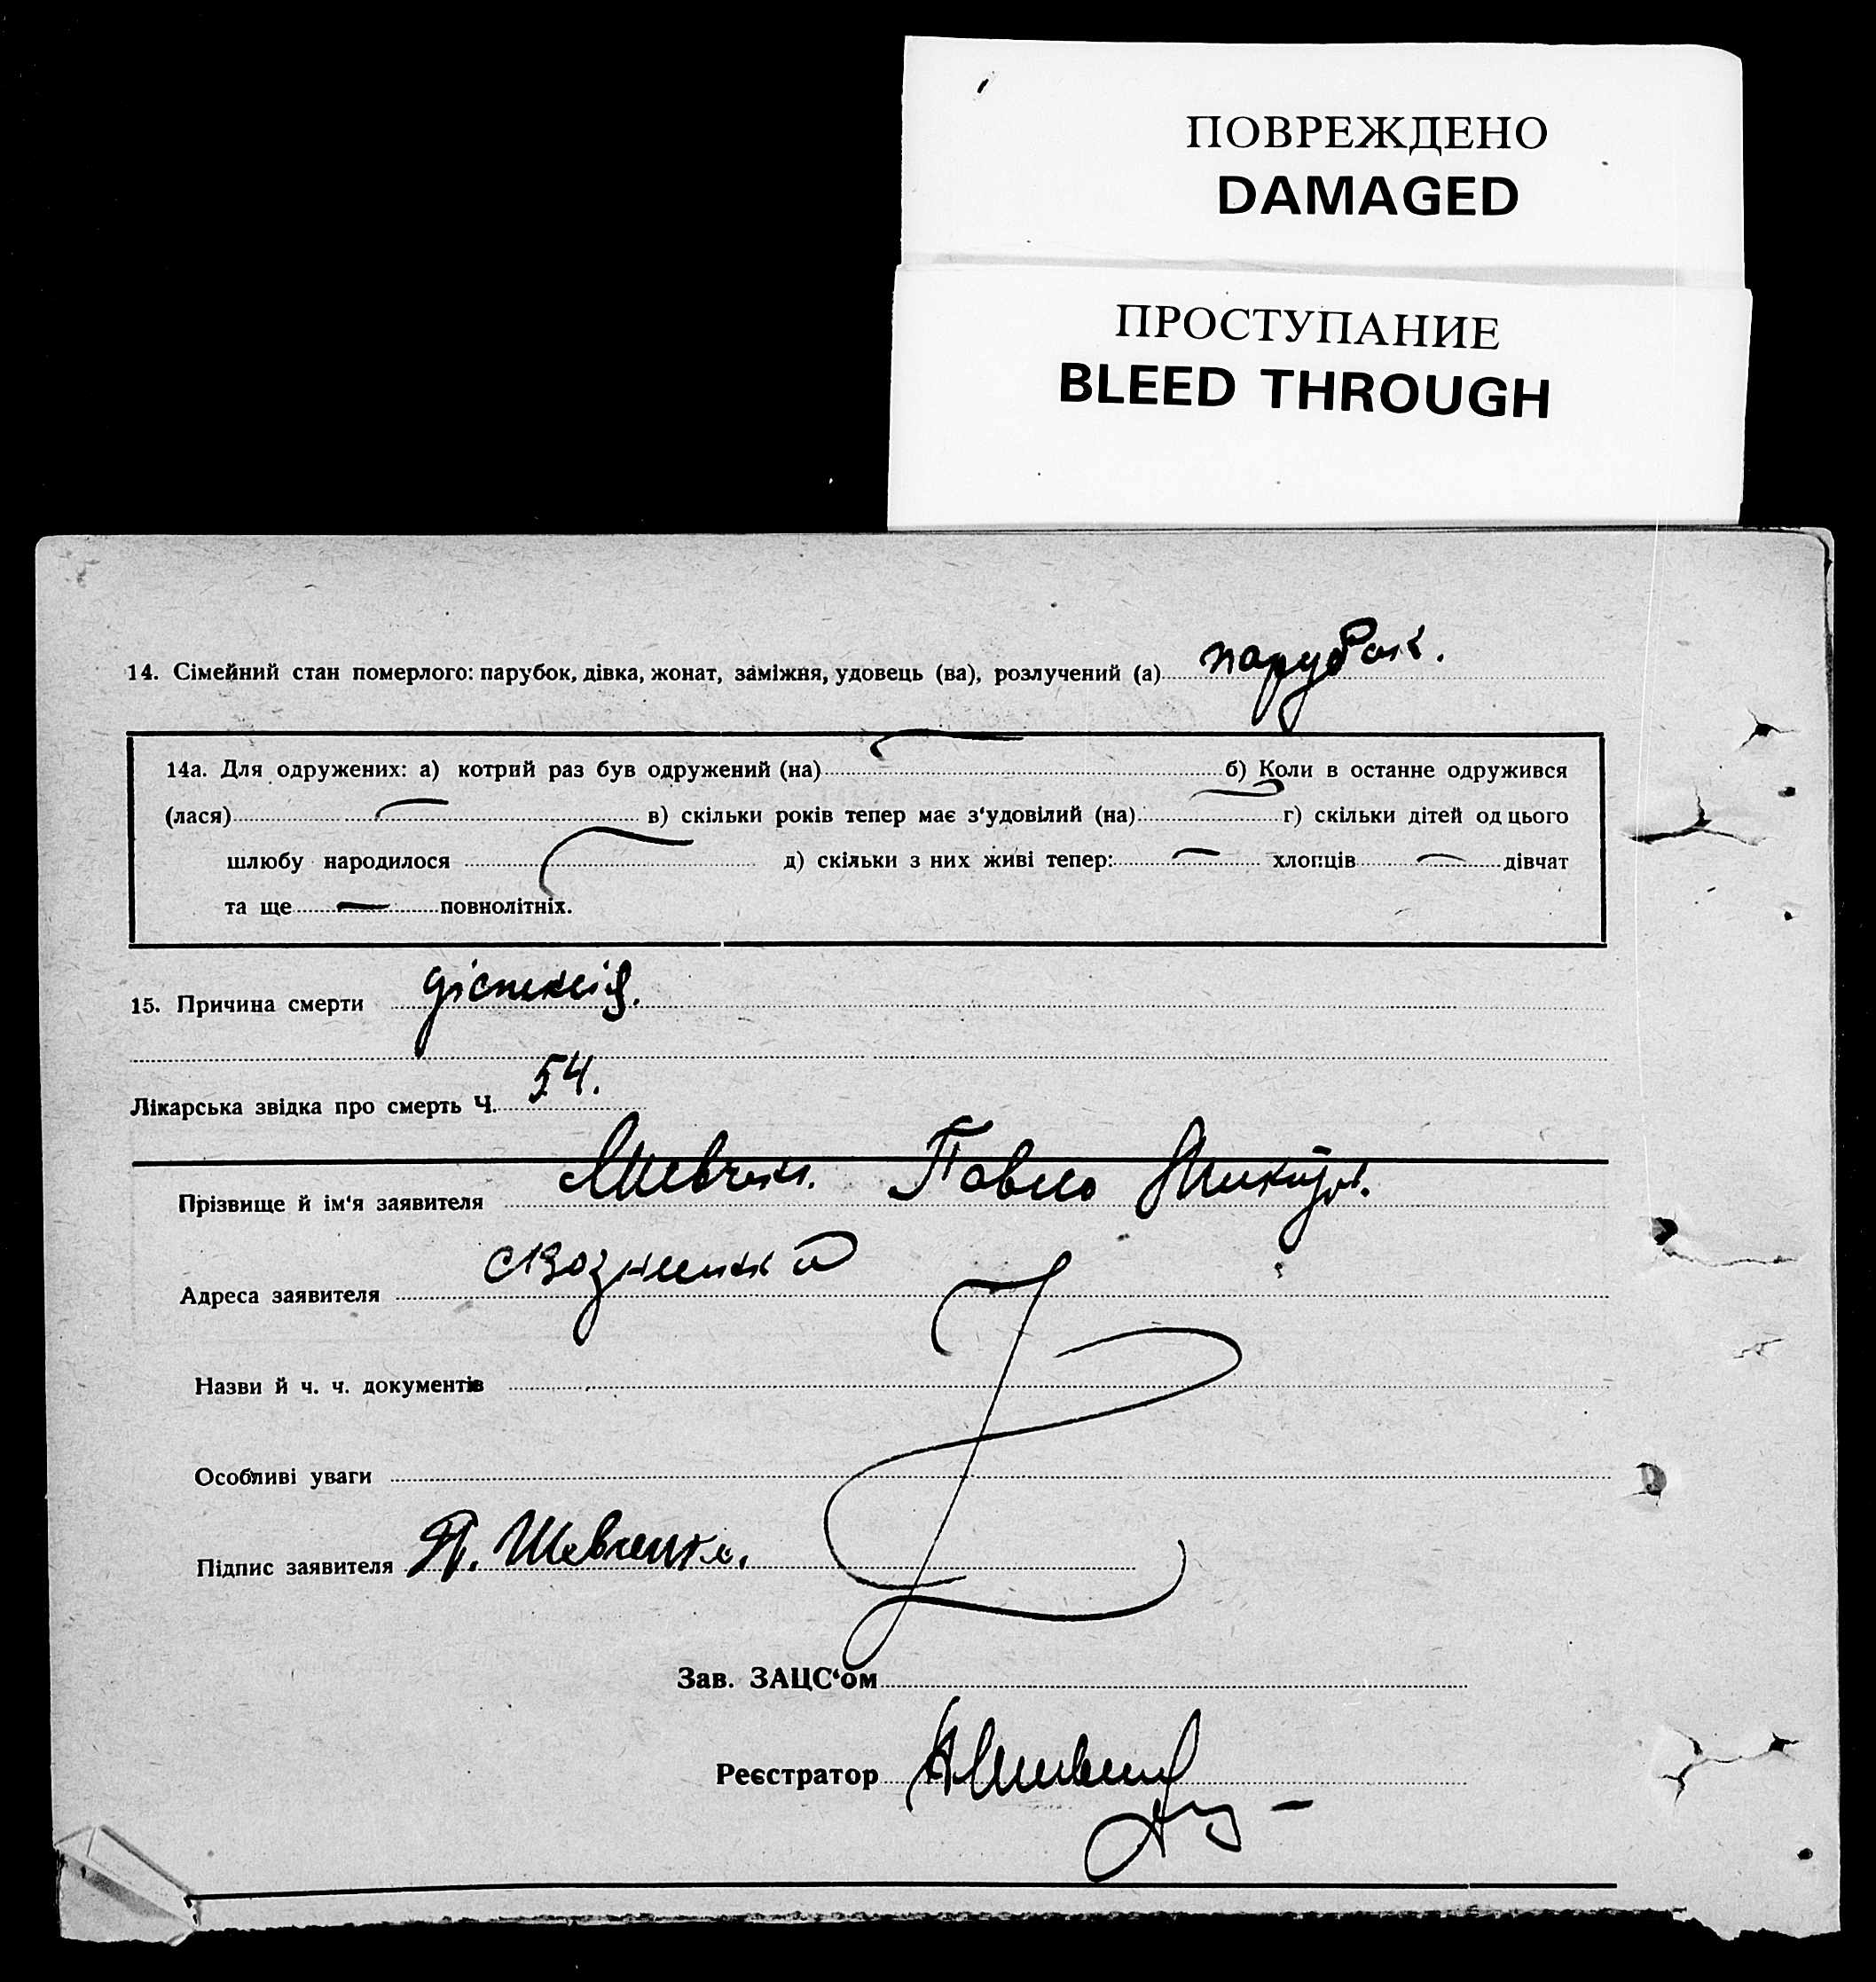 ПОВРЕЖДЕНО
DAMAGED
ПРОСТУПАНИЕ
BLEED THROUGH
14. Сімейний стан померлого: парубок, дівка, жонат, заміжня, удовець (ва), розлучений (а) парубок.
14а. Для одружених: а) котрий раз був одружений (на) б) Коли в останнє одружився
(лася) в) скільки років тепер має з‘удовілий (на) г) скільки дітей од цього
шлюбу народилося д) скільки з них живі тепер: хлопців дівчат
та ще повнолітніх.
15. Причина смерти діспексія.
Лікарська звідка про смерть Ч. 54.
Прізвище й ім‘я заявителя Шевченк. Павло
Адреса заявителя
Назви й ч. ч. документів
Особливі уваги
Підпис заявителя П. Шевченко.
Зав. ЗАЦС‘ом
Реєстратор